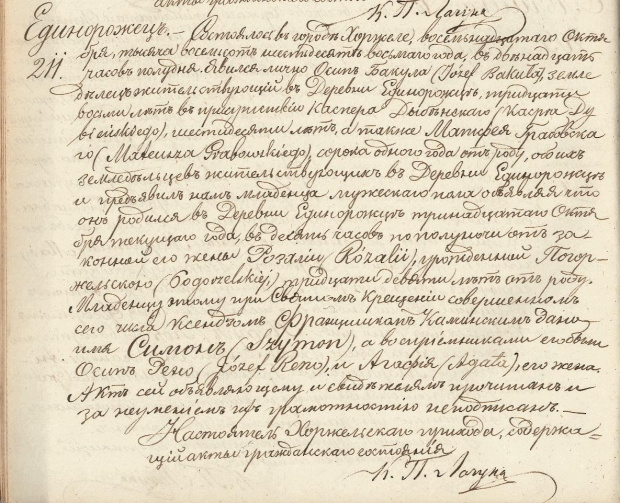 К. П. Логуна
Единорожецъ. — Состоялось въ городѣ Хоржеле, восемьнадцатаго Октя
211. бря, тысяча восемсотъ шестидесятъ восьмаго года, въ двѣнадцать
часовъ полудня. Явился лично Осипъ Бакула (Józef Bakuła), земле
дѣлецъ жительствующій въ Деревни Единорожецъ, тридцати
восьми лѣтъ, въ присутствіи Каспера Дыбѣнскаго (Kacpra Dy
bieńskiego), шестидесяти лѣтъ, а также Матфея Грабовска
го (Mateusza Grabowskiego), сорока одного года отъ роду, обоихъ
земледѣльцевъ жительствующихъ въ Деревни Единорожецъ
и предъявилъ намъ младенца мужескаго пола объявляя что
онъ родился въ Деревни Единорожецъ тринадцатаго Октя
бря текущаго года, въ десять часовъ по полуночи отъ за
конной его жены Розаліи (Rozalii), урожденной Погор-
жельской (Pogorzelskiej), тридцати девяти лѣтъ отъ роду.
Младенцу этому при Святомъ Крещеніи совершенномъ
сего числа Ксендзомъ Францишкомъ Каминскимъ дано
имя Симонъ (Szymon), а воспріемниками его были
Осипъ Рено (Józef Reno), и Агафія (Agata), его жена.
Актъ сей объявляющему и свидѣтелямъ прочитанъ и
за неумениемъ ихъ грамотности неподписанъ. —
Настоятель Хоржельскаго прихода, содержа-
щій акты гражданскаго состоянія
К. П. Логуна